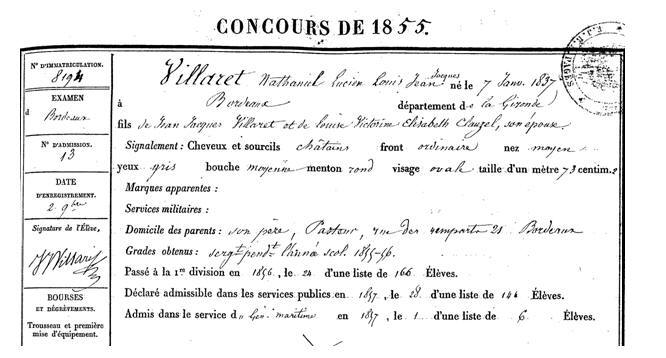 CONCOURS DE 1855.
N° D'IMMATRICULATION.
8194
EXAMEN
à Bordeaux
N° D'ADMISSION.
13
DATE
D'ENREGISTREMENT.
2 9bre
Signature de l'Élève,
BOURSES
ET DÉGRÈVEMENTS.
Trousseau et première
mise d'équipement.
Villaret Nathaniel Lucien Louis Jean Jacques né le 7 Janv. 1837
à Bordeaux département de la Gironde
fils de Jean Jacques Villaret et de Louise Victorine Elisabeth Clauzel, son épouse.
Signalement: Cheveux et sourcils châtains front ordinaire nez moyen
yeux gris bouche moyenne menton rond visage ovale taille d'un mètre 73 centim.s
Marques apparentes:
Services militaires:
Domicile des parents: son père, Pasteur, rue des remparts 21 Bordeaux
Grades obtenus: sergt pendt l'année scol. 1855-56.
Passé à la 1re division en 1856, le 24 d'une liste de 166 Élèves.
Déclaré admissible dans les services publics en 1857, le 28 d'une liste de 144 Élèves.
Admis dans le service du Génie maritime en 1857, le 1 d'une liste de 6 Élèves.